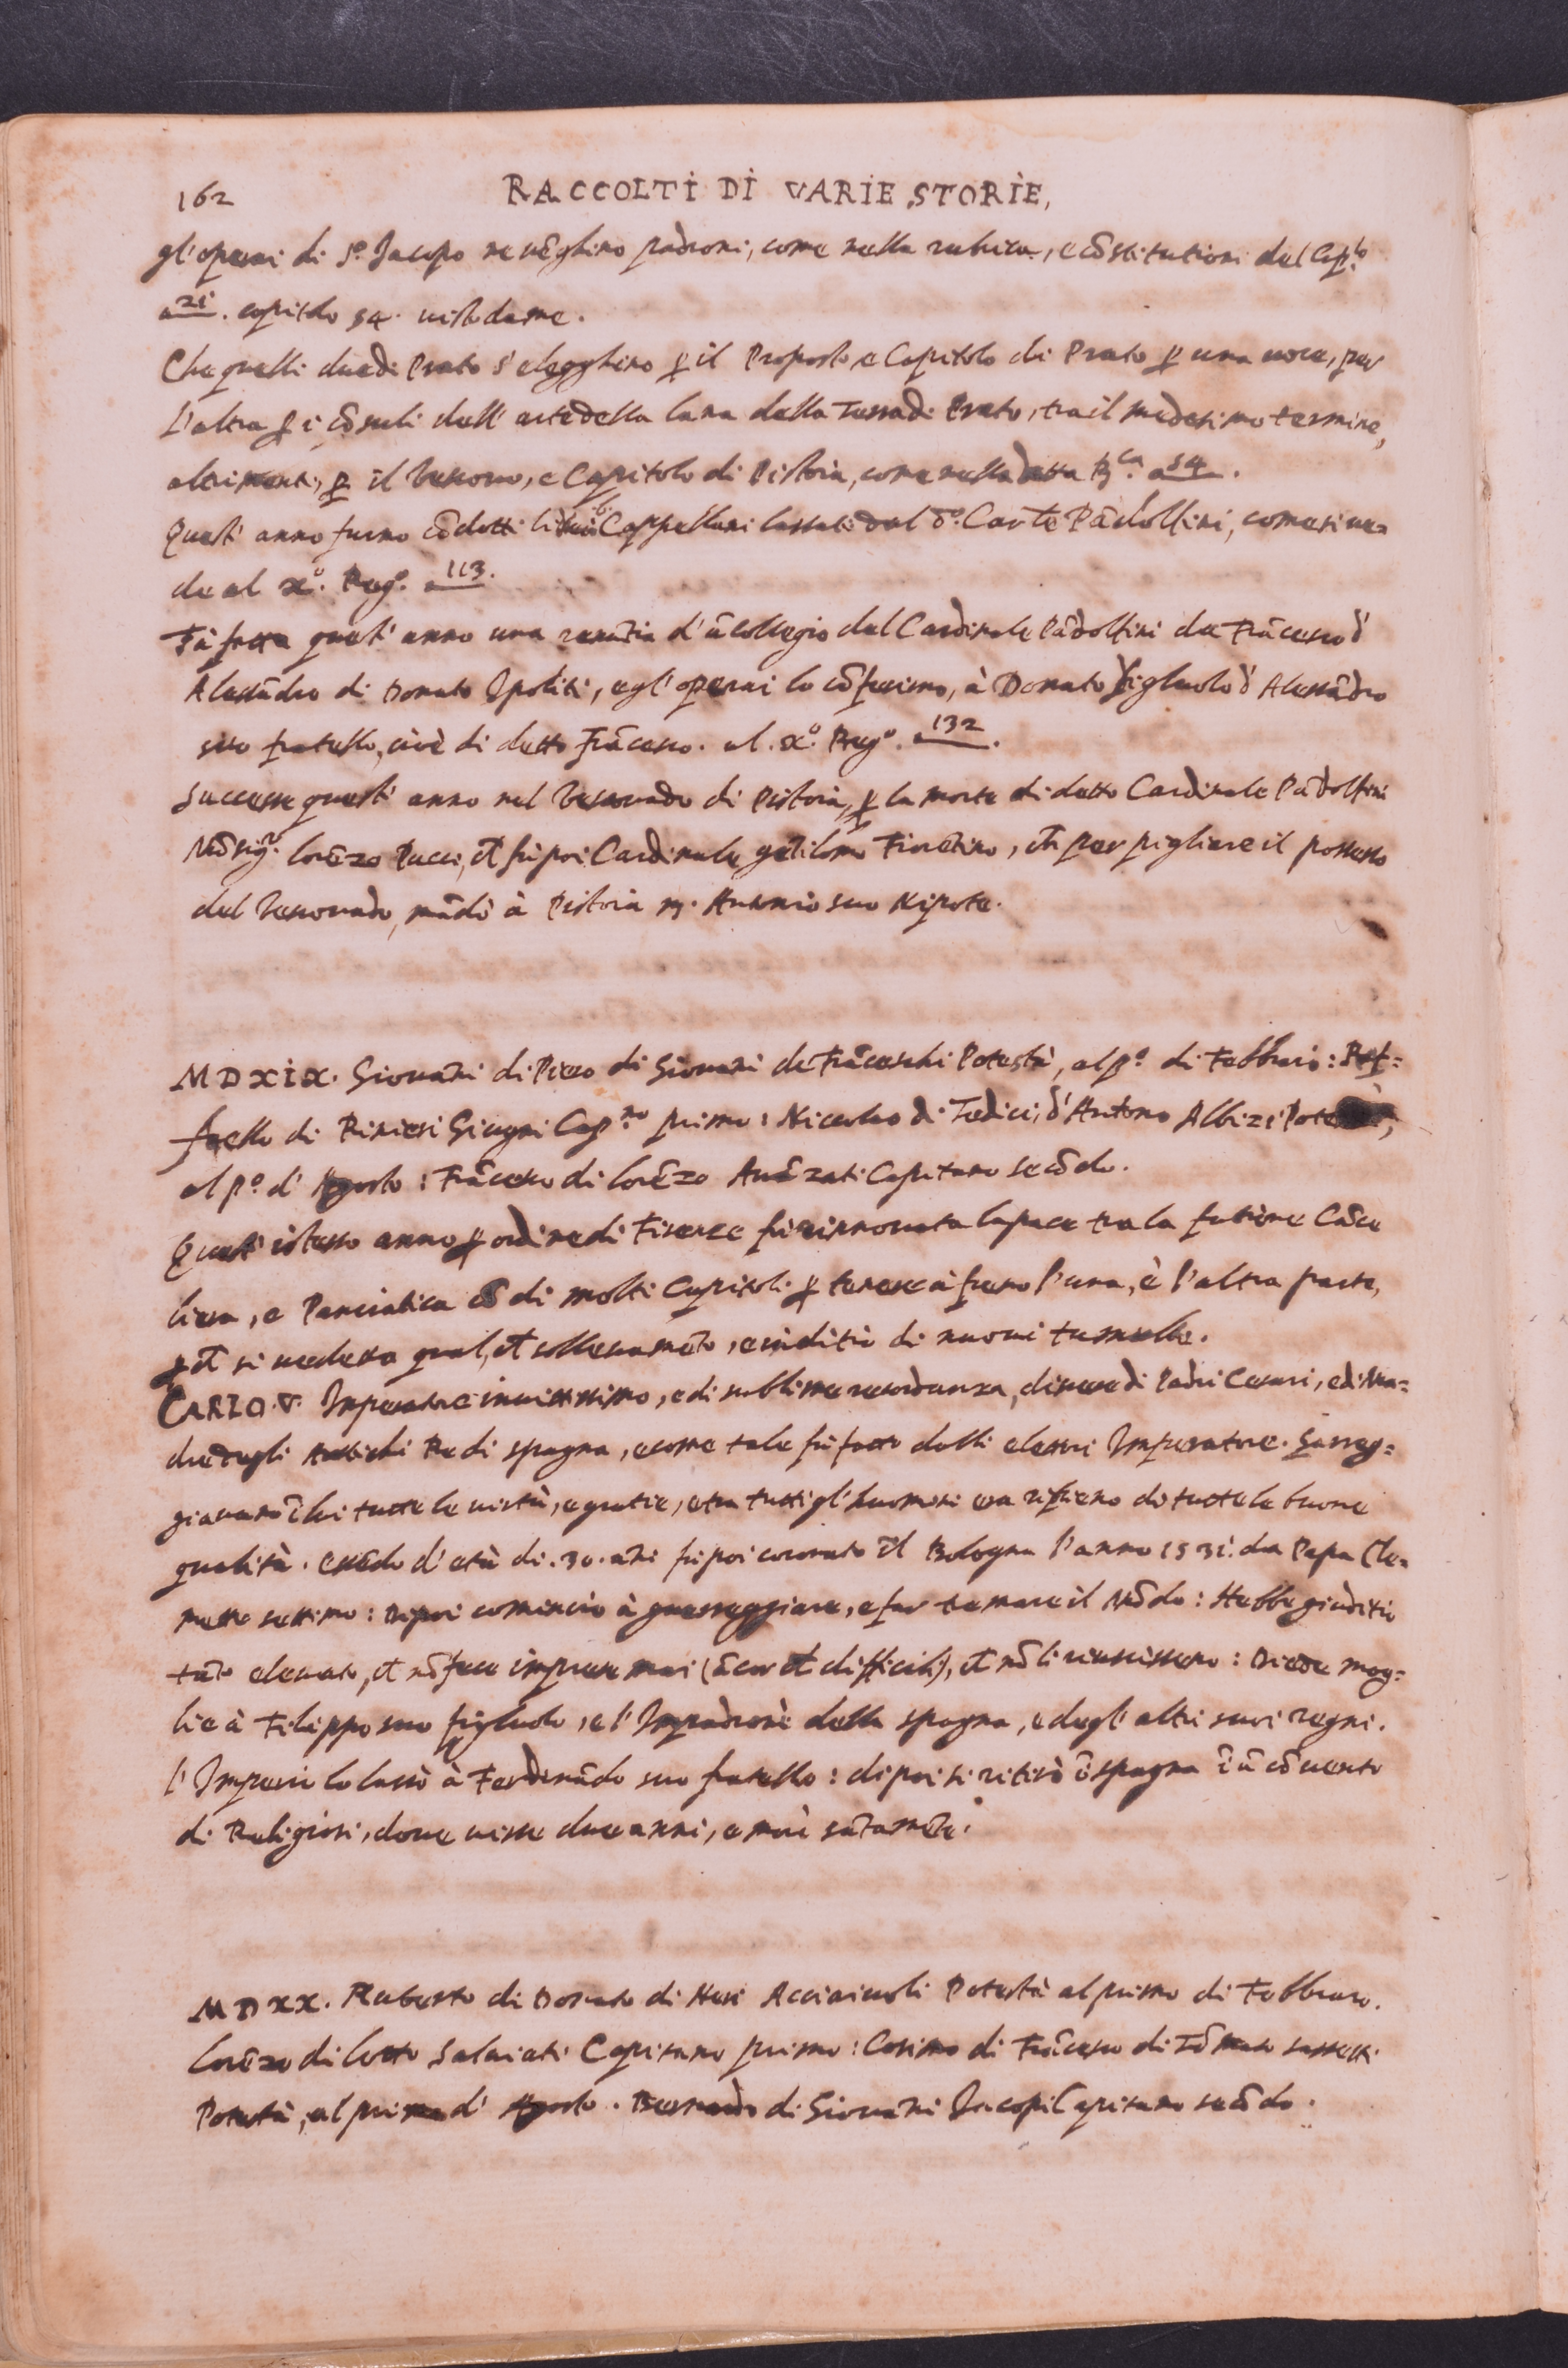 162 RACCOLTI DI VARIE STORIE,
gl'operai di S.º Jacopo ne vẽghino padroni, come nella rubrica, e cõstitutioni del Cap.lo
a 21. capitolo 54. visto da me.
Che quelli due di Prato s'elegghino ꝑ il Proposto, e Capitolo di Prato ꝑ una voce, per
l'altra ꝑ i cõsuli dell'arte della lana della Terra di Prato, tra il medesimo termine,
altrimenti, ꝑ il Vescovo, e Capitolo di Pistoia, come nella detta Rca. a 54.
Quest'anno furno cõdotti li Cappellani lassati dal dº. Carle Pãdolfini, come si ve=
de al xº. Regº. a 113.
Fù fatta quest'anno una renũtia d'ũ collegio del Cardinale Pãdolfini da Frãcesco d'
Alessãdro di Donato Ipoliti, e gl'operai lo cõferirno, à Donato figluolo d'Alessãdro
suo fratello, cioè di detto Frãcesco. al. xº. Regº. a 132.
Successe quest'anno nel Vescovado di Pistoia, ꝑ la morte di detto Cardinale Pãdolfini
Mõsigr. Lorẽzo Pucci, ch̃ fù poi Cardinale gẽtilomo Fiorẽtino, ch̃ per pigliare il possesso
del Vescovado, mãdò à Pistoia m. Antonio suo Nipote.
MDXIX. Giovãni di Piero di Giovãni de Frãceschi Potestà, al pº. di Febbraio: Raf=
faello di Rinieri Giugni Cap.no primo: Niccolao di Tedici, d'Antonio Albizi Potestà,
al pº. d'Agosto: Frãcesco di Lorẽzo Avãzati Capitano secõdo.
Quest'istesso anno ꝑ ordine di Firenze fù rinnovata la pace tra la fatione Cãce
liera, e Panciatica cõ di molti Capitoli ꝑ tenere à freno l'una, è l'altra parte,
ꝑch̃ si vedeva qual, ch̃ sollevamẽto, e inditio di nuovi tumulti.
CARLO. V. Imperatore invittissimo, e di sublime recordanza, discese di Padri Cesari, e di Ma=
dre degli Antichi Re di spagna, e come tale fù fatto dalli elettori Imperatore. Gareg=
giavano ĩ lui tutte le virtù, e gratie, e tra tutti gl'huomini era ripieno di tutte le buone
qualità. Essẽdo d'età di. 30. ãni fù poi coronato ĩ Bologna l'anno 1531. da Papa Cle=
mente settimo: Dipoi cominciò à guerreggiare, e far tremare il Mõdo: Hebbe giuditio
tãto elevato, ch̃ nõ fece imprese mai (ãcor ch̃ difficili), ch̃ nõ li riuscissero: Diede mog=
lie à Filippo suo figluolo, e l'Impadronì della spagna, e degl'altri suoi regni.
l'Imperio lo lassò à Ferdinãdo suo fratello: dipoi si ritirò ĩ spagna ĩ ũ cõvento
di Religiosi, dove visse due anni, e morì sãtamẽte.
MDXX. Ruberto di Donato di Neri Acciaiuoli Potestà al primo di Febbraio.
Lorẽzo di Lotto Salviati Capitano primo: Cosimo di Frãcesco di Tõmaso sassetti
Potestà, al primo d'Agosto. Bernardo di Giovãni Jacopi Capitano secõdo.